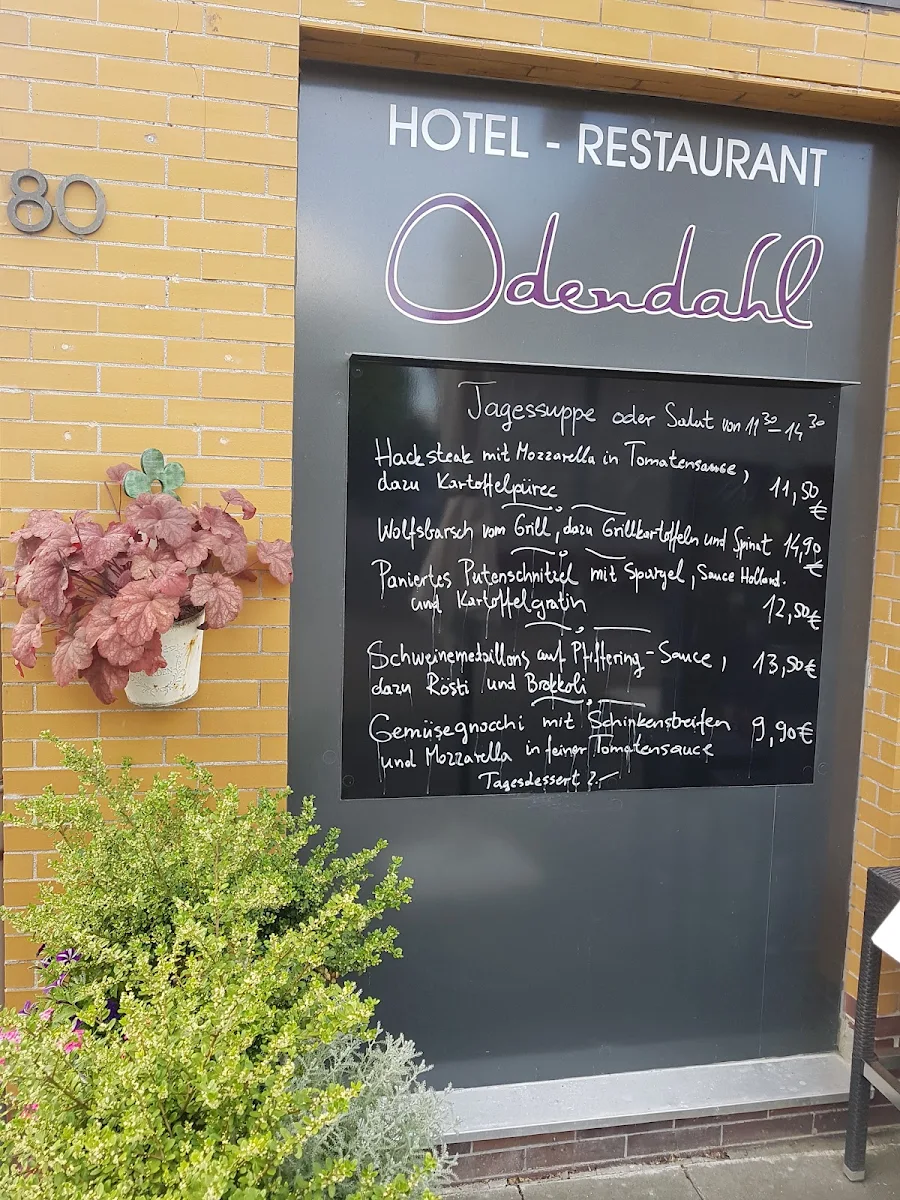 80
HOTEL - RESTAURANT
Odendahl
Tagessuppe oder Salat von 11³⁰-14³⁰
Hacksteak mit Mozzarella in Tomatensauce,
dazu Kartoffelpüree 11,50 €
Wolfsbarsch vom Grill, dazu Grillkartoffeln und Spinat 14,90 €
Paniertes Putenschnitzel mit Spargel, Sauce Holland.
und Kartoffelgratin 12,50€
Schweinemedaillons auf Pfifferling-Sauce, 13,50€
dazu Rösti und Brokkoli
Gemüsegnocchi mit Schinkenstreifen 9,90€
und Mozzarella in feiner Tomatensauce
Tagesdessert 2.-